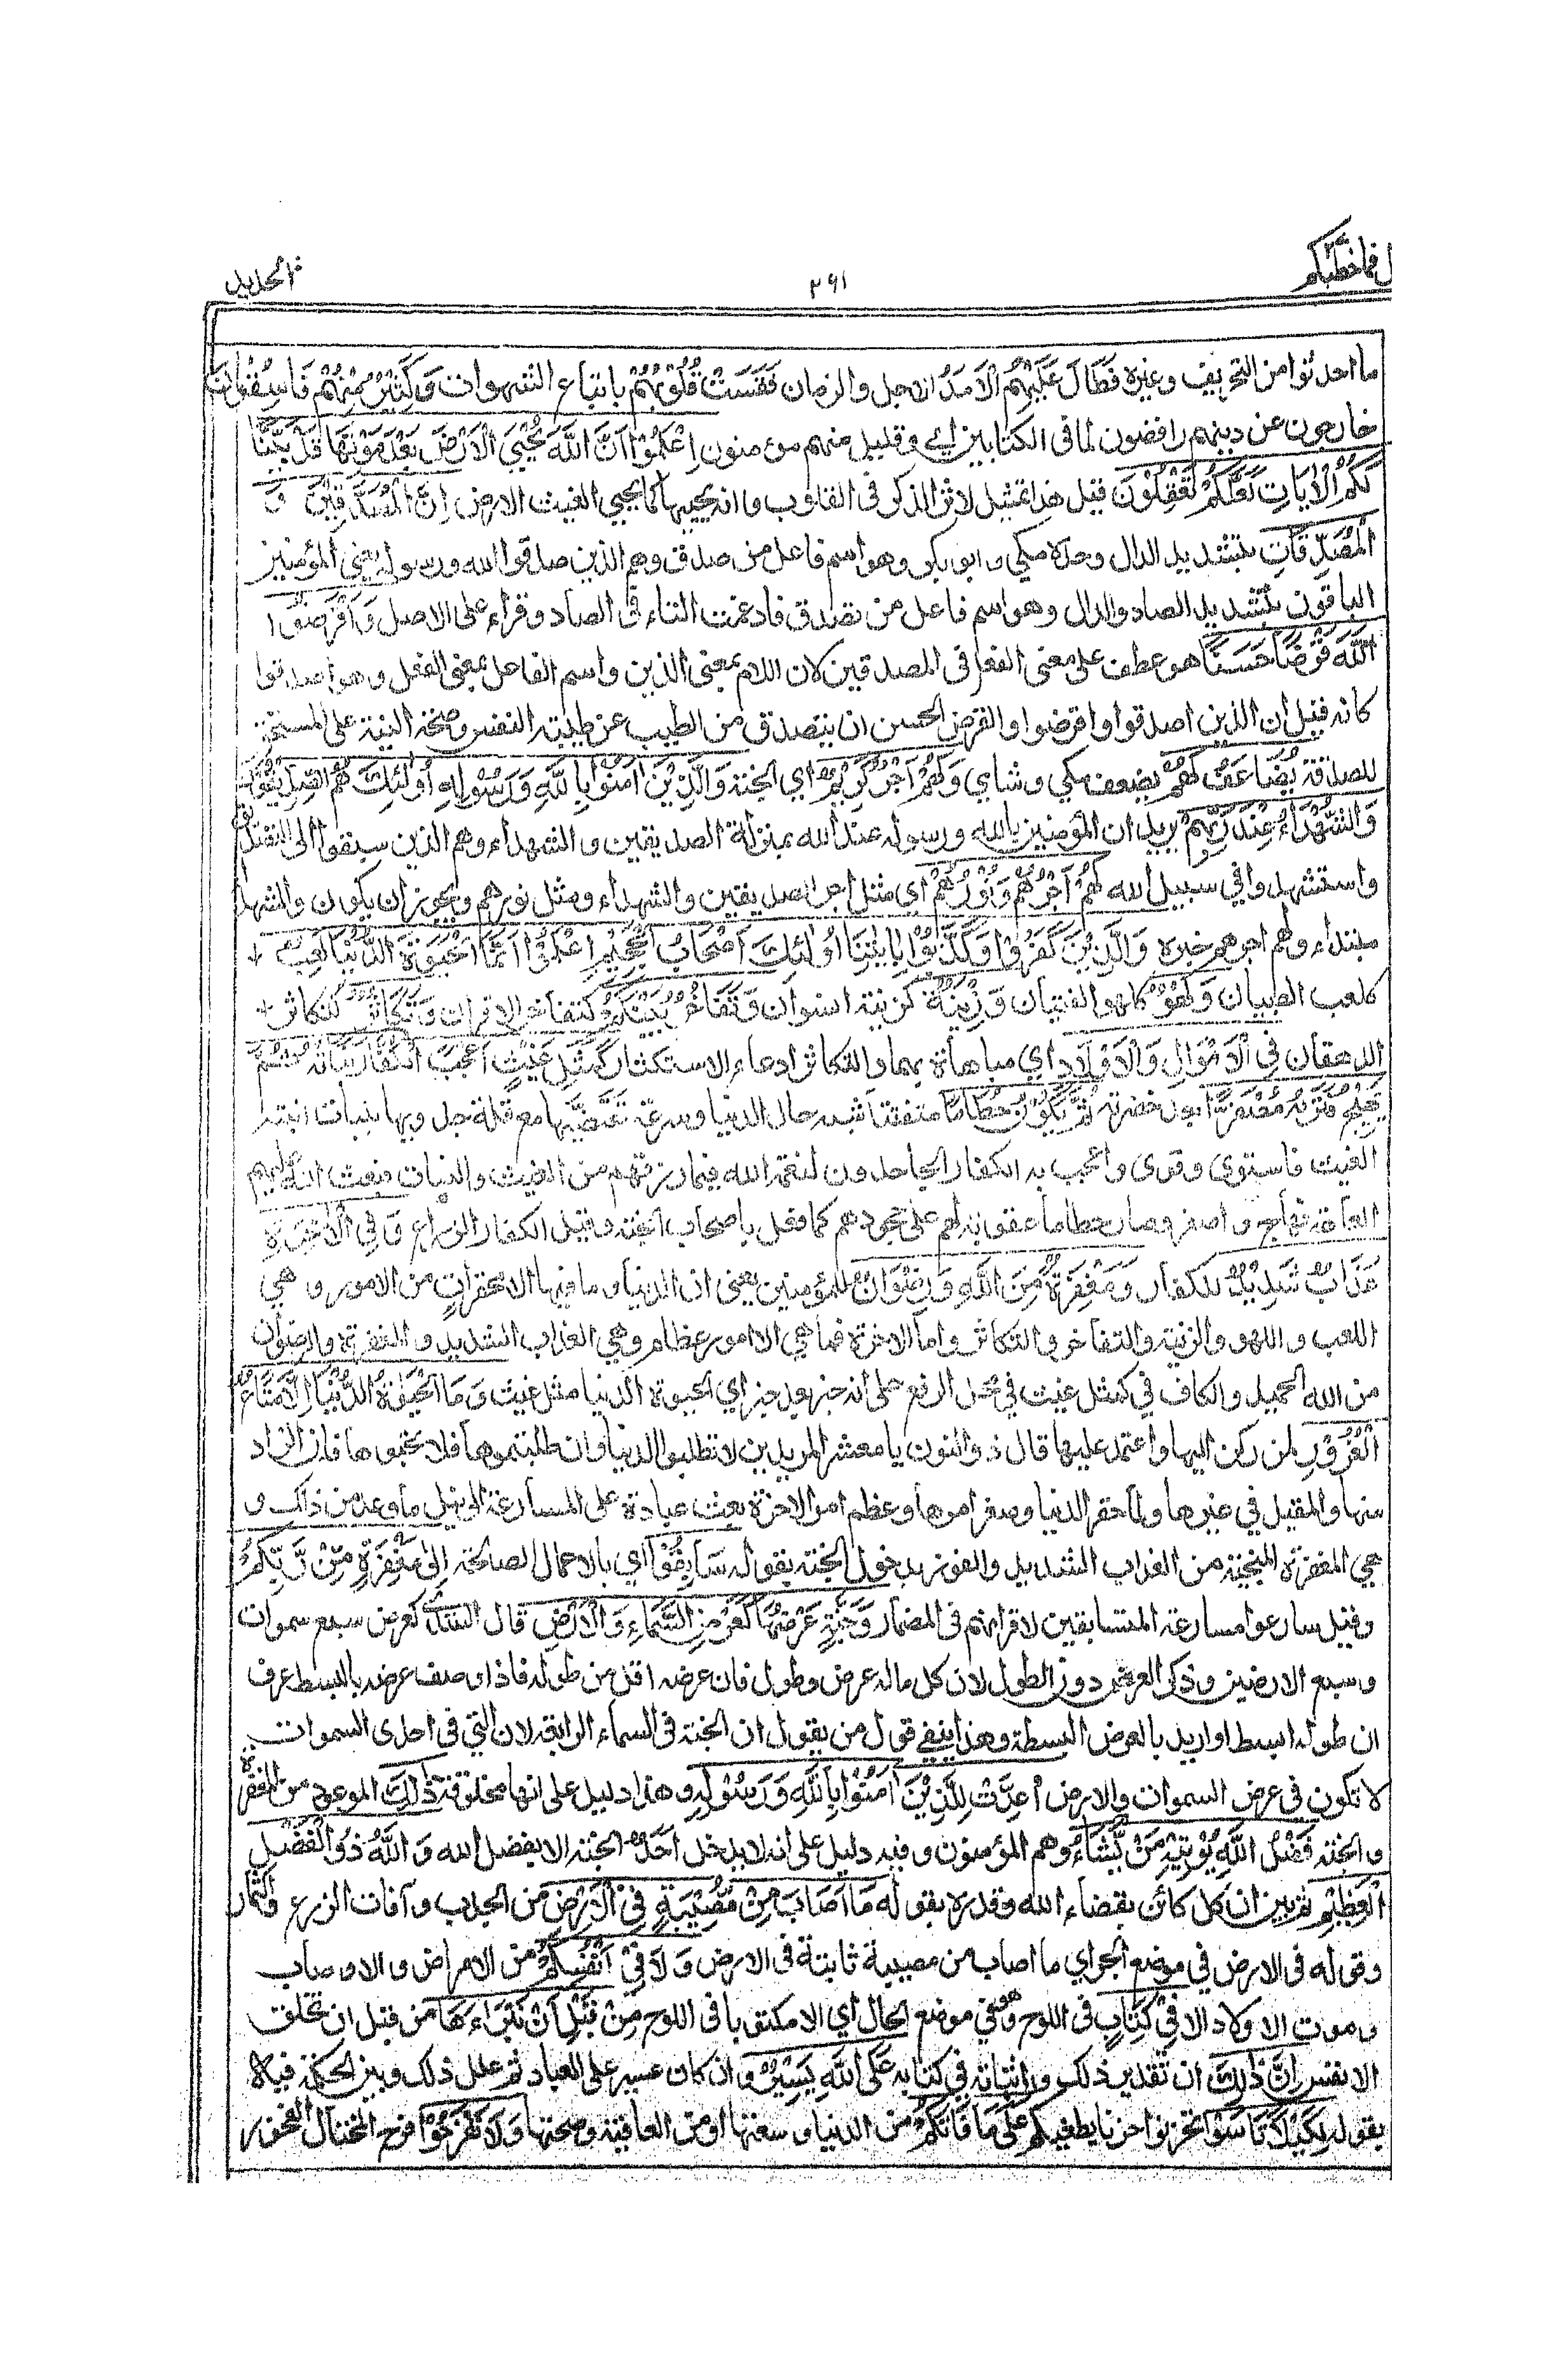 قال فما خطبكم ٣٦١ الحديد
ما احدثوا من التحريف وغيره فَطَالَ عَلَيْهِمُ الْاَمَدُ الاجل والزمان فَقَسَتْ قُلُوْبُهُمْ باتباع الشهوات وَكَثِيْرٌ مِّنْهُمْ فَاسِقُوْنَ
خارجون عن دينهم رافضون لما فى الكتابين اے وقليل منهم مؤمنون اِعْلَمُوْا اَنَّ اللّٰهَ يُحْيِي الْاَرْضَ بَعْدَ مَوْتِهَا قَدْ بَيَّنَّا
لَكُمُ الْاٰيَاتِ لَعَلَّكُمْ تَعْقِلُوْنَ قيل هذا تمثيل لاثر الذكر فى القلوب وانه يحييها كما يحيي الغيث الارض اِنَّ الْمُصَّدِّقِيْنَ وَ
الْمُصَّدِّقَاتِ بتشديد الدال وحده مكي وابو بكر وهو اسم فاعل من صدق وهم الذين صدقوا الله ورسوله يعني المؤمنين
الباقون بتشديد الصاد والدال وهو اسم فاعل من تصدق فادغمت التاء فى الصاد وقراء على الاصل وَاَقْرَضُوا
اللّٰهَ قَرْضًا حَسَنًا هو عطف على معنى الفعل فى المصدقين لان اللام بمعنى الذين واسم الفاعل بمعنى الفعل وهو اصدقوا
كانه قيل ان الذين اصدقوا واقرضوا والقرض الحسن ان يتصدق من الطيب عن طيبة النفس وصحة النية على المستحق
للصدقة يُضَاعَفُ لَهُمْ يضعف مكي وشامي وَلَهُمْ اَجْرٌ كَرِيْمٌ اي الجنة وَالَّذِيْنَ اٰمَنُوْا بِاللّٰهِ وَرَسُوْلِهِ اُولٰئِكَ هُمُ الصِّدِّيْقُوْنَ
وَالشُّهَدَاءُ عِنْدَ رَبِّهِمْ يريد ان المؤمنين بالله ورسوله عند الله بمنزلة الصديقين والشهداء وهم الذين سبقوا الى التصديق
واستشهدوا في سبيل الله لَهُمْ اَجْرُهُمْ وَنُوْرُهُمْ اي مثل اجر الصديقين والشهداء ومثل نورهم ويجوز ان يكون والشهداء
مبتداء ولهم اجرهم خبره وَالَّذِيْنَ كَفَرُوْا وَكَذَّبُوْا بِاٰيٰتِنَا اُولٰئِكَ اَصْحَابُ الْجَحِيْمِ اِعْلَمُوْا اَنَّمَا الْحَيٰوةُ الدُّنْيَا لَعِبٌ
كلعب الصبيان وَلَهْوٌ كلهو الفتيان وَزِيْنَةٌ كزينة النسوان وَتَفَاخُرٌ بَيْنَكُمْ كتفاخر الاقران وَتَكَاثُرٌ كتكاثر
الدهقان فِي الْاَمْوَالِ وَالْاَوْلَادِ اي مباهاة بهما والتكاثر ادعاء الاستكثار كَمَثَلِ غَيْثٍ اَعْجَبَ الْكُفَّارَ نَبَاتُهُ ثُمَّ
يَهِيْجُ فَتَرٰىهُ مُصْفَرًّا بعد خضرته ثُمَّ يَكُوْنُ حُطَامًا متفتتا شبه حال الدنيا وسرعة تقضيها مع قلة جدويها بنبات انبته
الغيث فاستوى وقوى واعجب به الكفار الجاحدون لنعمة الله فيما رزقهم من الغيث والنبات فبعث الله عليهم
العاهة فهاج واصفر وصار حطاما عقوبة لهم على جحودهم كما فعل باصحاب الجنة وقيل الكفار الزراع وَفِي الْاٰخِرَةِ
عَذَابٌ شَدِيْدٌ للكفار وَمَغْفِرَةٌ مِّنَ اللّٰهِ وَرِضْوَانٌ للمؤمنين يعنى ان الدنيا وما فيها الا محقرات من الامور وهي
اللعب واللهو والزينة والتفاخر والتكاثر واما الاخرة فما هي الا امور عظام وهي العذاب الشديد والمغفرة والرضوان
من الله الحميد والكاف في كمثل غيث في محل الرفع على انه خبر بعد خبر اي الحيوة الدنيا مثل غيث وَمَا الْحَيٰوةُ الدُّنْيَا اِلَّا مَتَاعُ
الْغُرُوْرِ لمن ركن اليها واعتمد عليها قال ذو النون يا معشر المريدين لا تطلبوا الدنيا وان طلبتموها فلا تحبوها فان الزاد
منها والمقيل في غيرها ولما حقر الدنيا وصغر امرها وعظم امر الاخرة بعث عباده على المسارعة الى نيل ما وعد من ذلك و
هي المغفرة المنجية من العذاب الشديد والفوز بدخول الجنة بقوله سَابِقُوْا اي بالاعمال الصالحة اِلٰى مَغْفِرَةٍ مِّنْ رَّبِّكُمْ
وقيل سارعوا مسارعة المتسابقين لاقرانهم فى المضمار وَجَنَّةٍ عَرْضُهَا كَعَرْضِ السَّمَاءِ وَالْاَرْضِ قال السدى كعرض سبع سموات
وسبع الارضين وذكر العرض دون الطول لان كل ماله عرض وطول فان عرضه اقل من طوله فاذا وصف عرضه بالبسط عرف
ان طوله ابسط او اريد بالعرض البسطة وهذا ينفي قول من يقول ان الجنة فى السماء الرابعة لان التي فى احدى السموات
لا تكون فى عرض السموات والارض اُعِدَّتْ لِلَّذِيْنَ اٰمَنُوْا بِاللّٰهِ وَرَسُوْلِهِ وهذا دليل على انها مخلوقة ذٰلِكَ الموعود من المغفرة
والجنة فَضْلُ اللّٰهِ يُؤْتِيْهِ مَنْ يَّشَاءُ وهم المؤمنون وفيه دليل على انه لا يدخل احد الجنة الا بفضل الله وَ اللّٰهُ ذُو الْفَضْلِ
الْعَظِيْمِ ثم بين ان كل كائن بقضاء الله وقدره بقوله مَا اَصَابَ مِنْ مُّصِيْبَةٍ فِي الْاَرْضِ من الجدب وآفات الزرع والثمار
وقوله فى الارض في موضع الجر اي ما اصاب من مصيبة ثابتة فى الارض وَلَا فِيْ اَنْفُسِكُمْ من الامراض والاوصاب
وموت الاولاد الا فِيْ كِتَابٍ فى اللوح وهو في موضع الحال اي الا مكتوبا فى اللوح مِنْ قَبْلِ اَنْ نَّبْرَاَهَا من قبل ان نخلق
الانفس اِنَّ ذٰلِكَ ان تقدير ذلك واثباته في كتابه عَلَى اللّٰهِ يَسِيْرٌ وان كان عسيرا على العباد ثم علل ذلك وبين الحكمة فيه
بقوله لِكَيْلَا تَاْسَوْا تحزنوا حزنا يطغيكم عَلٰى مَا فَاتَكُمْ من الدنيا وسعتها او من العافية وصحتها وَلَا تَفْرَحُوْا فرح المختال الفخور